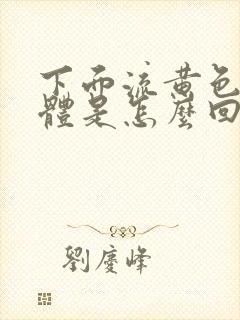 下面流黄色
體是怎麼回
劉慶峰